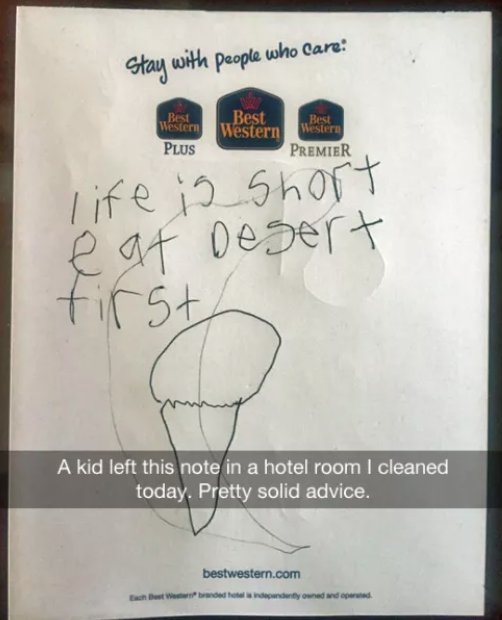 Stay with people who care:
Best Western
PLUS
Best Western
Best Western
PREMIER
life is short
eat Desert
first
A kid left this note in a hotel room I cleaned
today. Pretty solid advice.
bestwestern.com
Each Best Western® branded hotel is independently owned and operated.